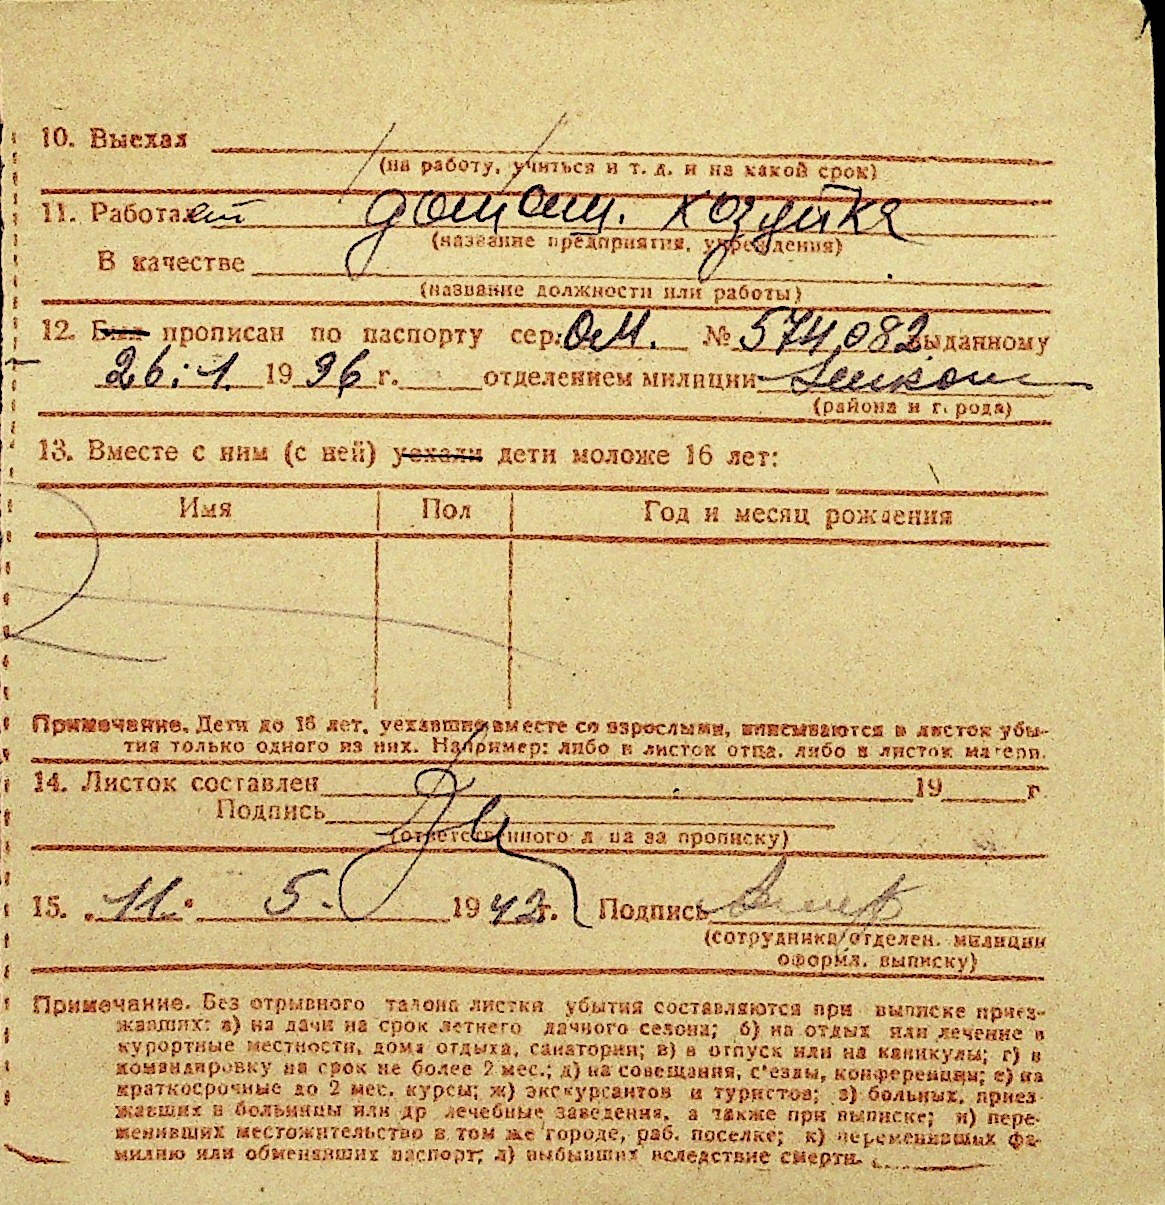 10. Выехал
(на работу, учиться и т. д. и на какой срок)
11. Работает домаш. хозяйка
(название предприятия, учреждения)
В качестве
(название должности или работы)
12. Был прописан по паспорту сер. ОМ. № 574082 выданному
26.1. 1936 г. отделением милиции
(района и города)
13. Вместе с ним (с ней) уехали дети моложе 16 лет:
Имя Пол Год и месяц рождения
Примечание. Дети до 16 лет, уехавшие вместе со взрослыми, вписываются в листок убы-
тия только одного из них. Например: либо в листок отца, либо в листок матери.
14. Листок составлен 19 г
Подпись
(ответственного лица за прописку)
15. 11. 5. 1942 г. Подпись
(сотрудника отделен. милиции
оформл. выписку)
Примечание. Без отрывного талона листки убытия составляются при выписке приез-
жавших: а) на дачи на срок летнего дачного сезона; б) на отдых или лечение в
курортные местности, дома отдыха, санатории; в) в отпуск или на каникулы; г) в
командировку на срок не более 2 мес.; д) на совещания, с'езды, конференции; е) на
краткосрочные до 2 мес. курсы; ж) экскурсантов и туристов; з) больных, приез-
жавших в больницы или др лечебные заведения, а также при выписке; и) пере-
менивших местожительство в том же городе, раб. поселке; к) переменивших фа-
милию или обменявших паспорт; л) выбывших вследствие смерти.